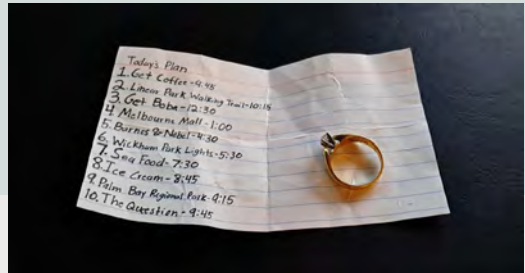 Today's Plan
1. Get Coffee - 9:45
2. Linear Park Walking Trail - 10:15
3. Get Boba - 12:30
4. Melbourne Mall - 1:00
5. Barnes & Nobel - 4:30
6. Wickham Park Lights - 5:30
7. Sea Food - 7:30
8. Ice Cream - 8:45
9. Palm Bay Regional Park - 9:15
10. The Question - 9:45